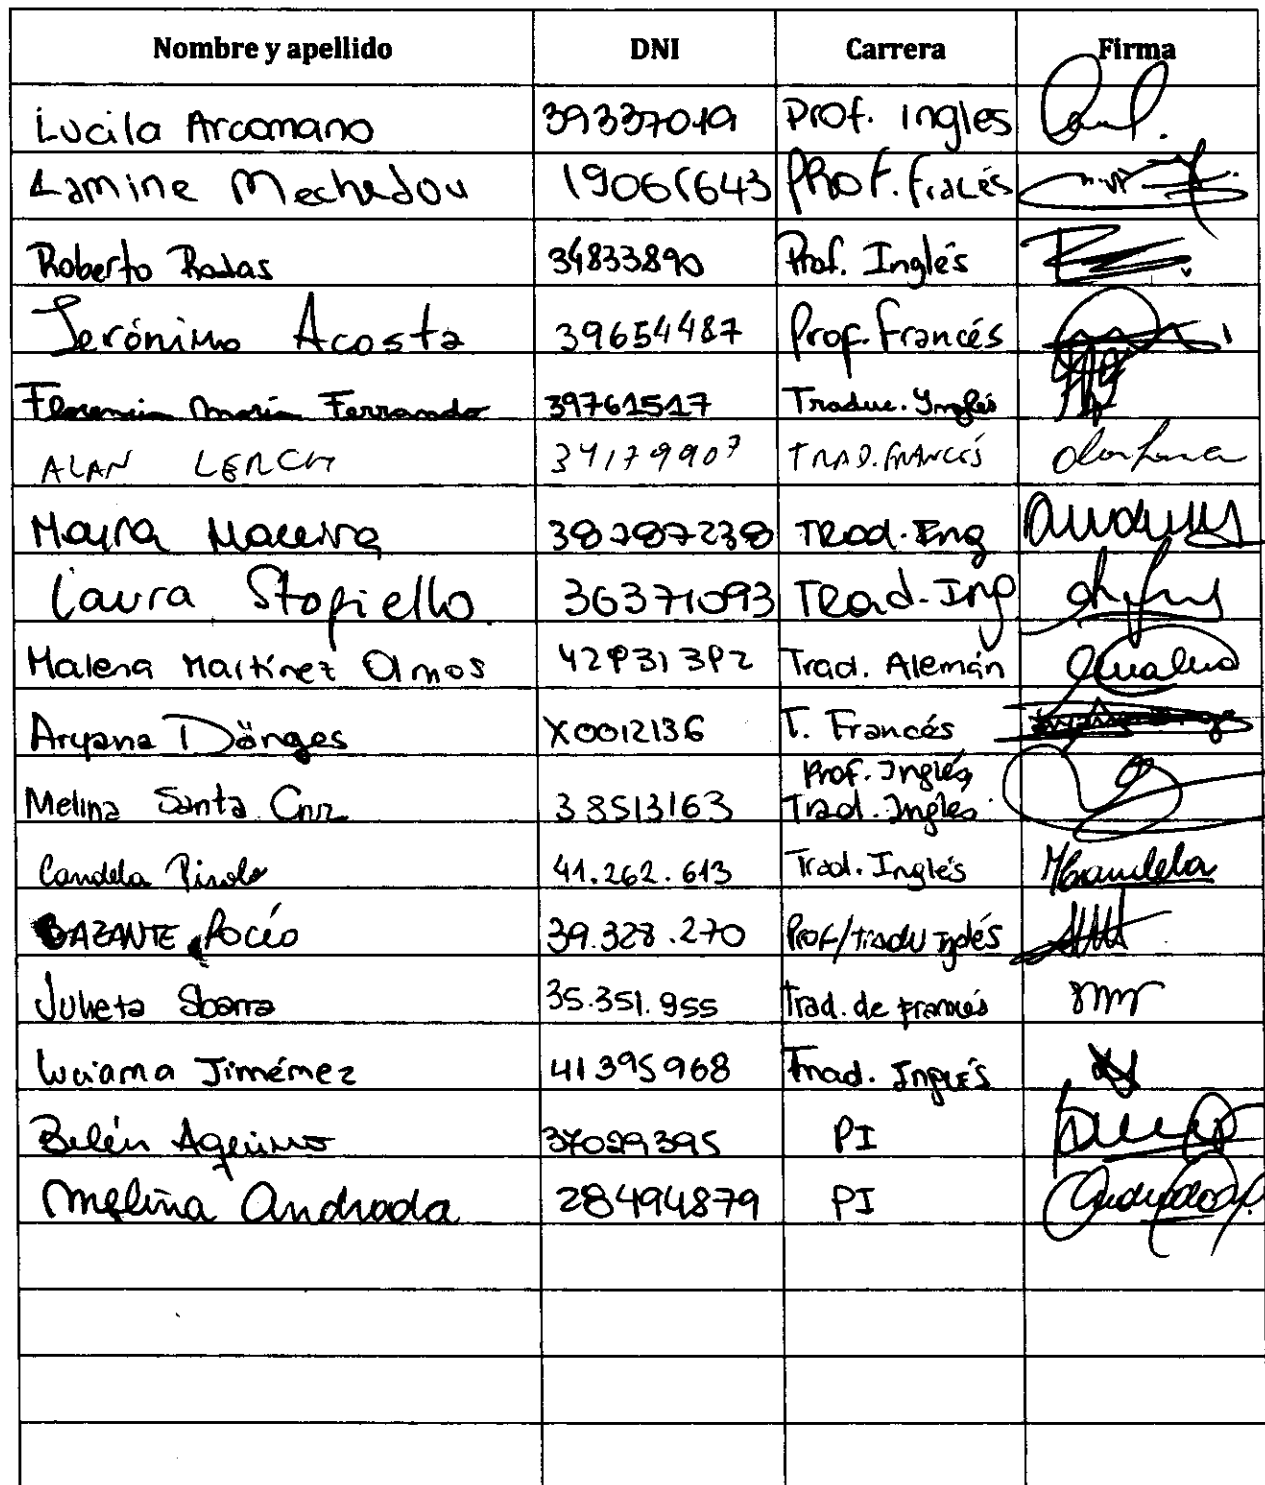 Nombre y apellido DNI Carrera Firma
Lucila Arcomano 39337019 Prof. Ingles
Lamine Mechedou 19061643 PROF. Fracés
Roberto Rodas 34833890 Prof. Inglés
Jerónimo Acosta 39654487 Prof. Francés
Florencia María Ferrando 39761517 Traduc. Inglés
ALAN LERCH 34179907 TRAD. FRANCÉS
Mayra Maceira 38787238 TRad. Ing
Laura Stopiello 36371093 TRad-Ing
Malena Martínez Olmos 42831382 Trad. Alemán
Aryana Dönges X0012136 T. Francés
Melina Santa Cruz 38513163 Prof. Inglés
Trad. Inglés
Candela Pirolo 41.262.613 Trad. Inglés Candela
BAZANTE Rocío 39.328.270 Prof/Tradu Inglés
Julieta Sbarra 35.351.955 Trad. de francés
Luciana Jiménez 41395968 Trad. Inglés
Belén 37029395 PI
Melina Andrada 28494879 PI